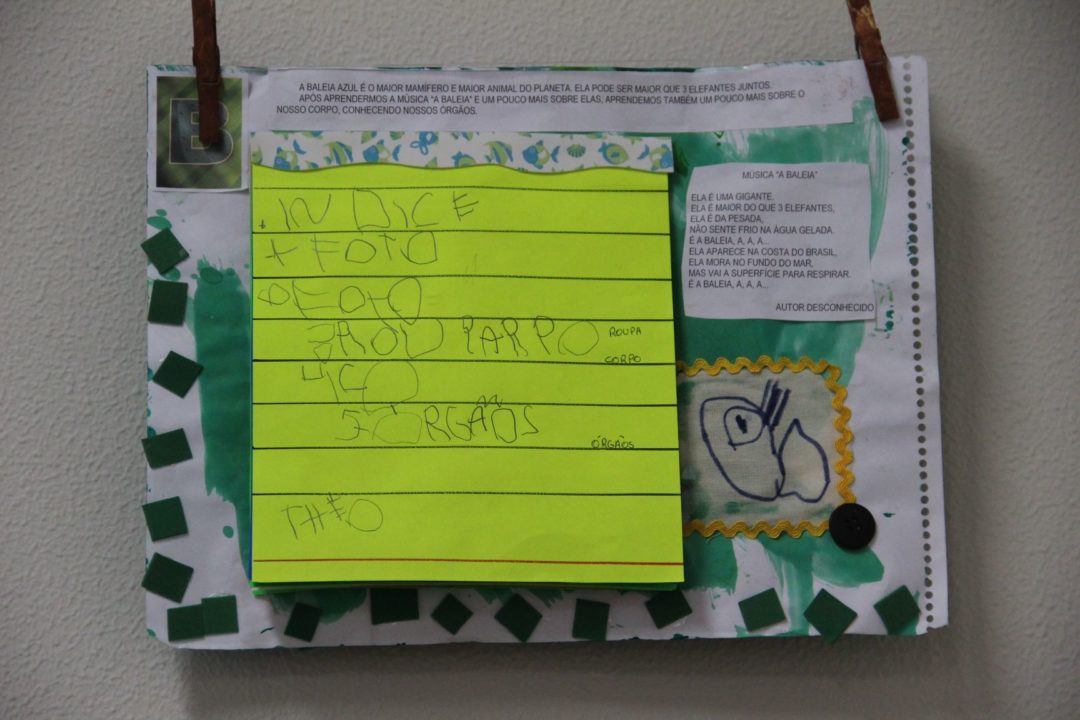 B
A BALEIA AZUL É O MAIOR MAMÍFERO E MAIOR ANIMAL DO PLANETA. ELA PODE SER MAIOR QUE 3 ELEFANTES JUNTOS.
APÓS APRENDERMOS A MÚSICA "A BALEIA" E UM POUCO MAIS SOBRE ELAS, APRENDEMOS TAMBÉM UM POUCO MAIS SOBRE O
NOSSO CORPO, CONHECENDO NOSSOS ÓRGÃOS.
INDICE
FOTO
ROUPA
CORPO
ORGÃOS
ÓRGÃOS
THEO
MÚSICA "A BALEIA"
ELA É UMA GIGANTE.
ELA É MAIOR DO QUE 3 ELEFANTES,
ELA É DA PESADA,
NÃO SENTE FRIO NA ÁGUA GELADA.
É A BALEIA, A, A, A...
ELA APARECE NA COSTA DO BRASIL,
ELA MORA NO FUNDO DO MAR,
MAS VAI A SUPERFÍCIE PARA RESPIRAR.
É A BALEIA, A, A, A...
AUTOR DESCONHECIDO